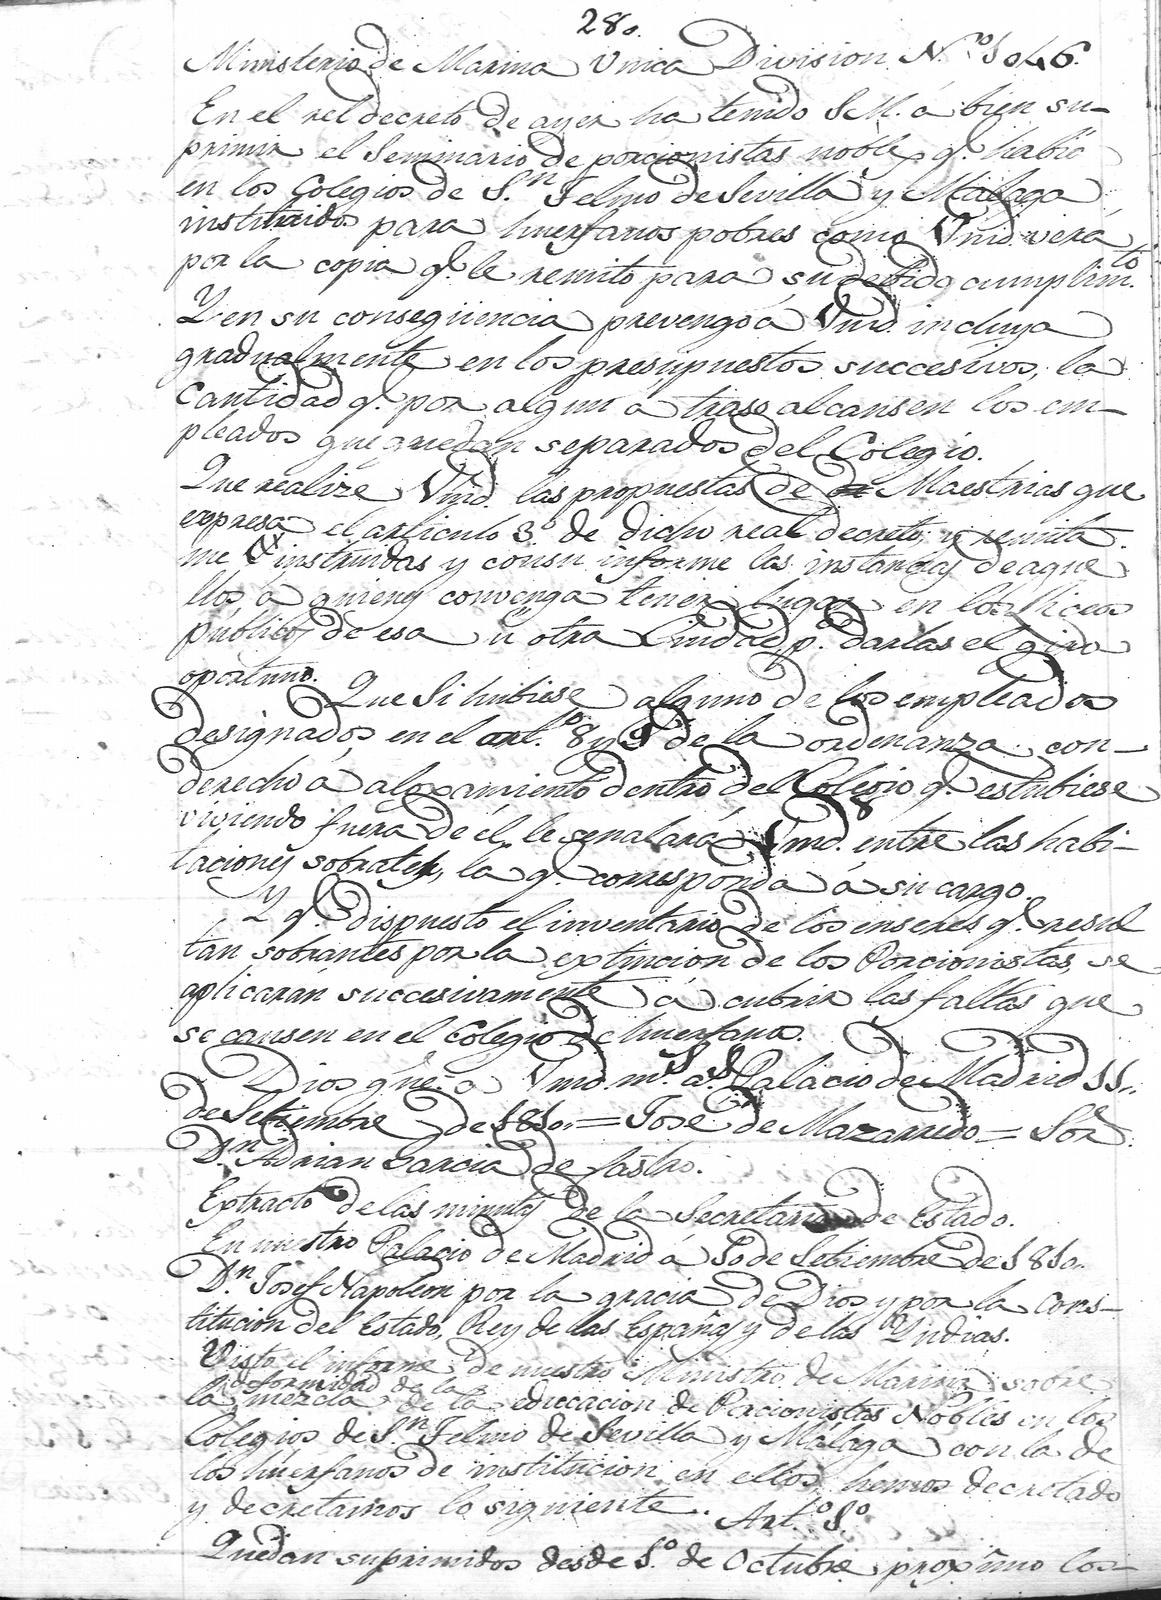 28.
Ministerio de Marina Unica Division N.º 1046.
En el rel decreto de ayer ha tenido S M. á bien su-
primir el Seminario de porcionistas nobles q.e habia
en los Colegios de S.n Telmo de Sevilla y Malaga
instituidos para huerfanos pobres como Vmd. verá
por la copia q.e le remito para su debido cumplim.to
Y en su conseqüencia prevengo á Vmd. incluya
gradualmente en los presupuestos succesivos, la
Cantidad q.e por algun atraso alcansen los em-
pleados que quedan separados del Colegio.
Que realize Vmd. las propuestas de Maestrias que
expresa el articulo 3.º de dicho real decreto, y remita
me instruidas y con su informe las instancias de aque
llos á quienes convenga tener lugar en los liceos
publicos de esa u otra Ciudad, p.a darlas el giro
oportuno.
Que Si hubiese alguno de los empleados
designados, en el art.º 8 y 9 de la ordenanza con-
derecho á aloxamiento dentro del Colegio q.e estubiese
viviendo fuera de él, le señalará Vmd. entre las habi-
taciones sobrantes, la q.e corresponda á su cargo.
Y q.e dispuesto el inventario de los enseres q.e resul
tan sobrantes por la extincion de los Porcionistas, se
aplicarán succesivamente á cubrir las faltas que
se causen en el Colegio de huerfanos.
Dios gue. a Vmd. m.s a.s Palacio de Madrid 11.
de Setiembre de 1810. = José de Mazarredo = Sor
D.n Adrian Garcia de Castro.
Extracto de las minutas de la Secretaria de Estado.
En nuestro Palacio de Madrid á 10 de Setiembre de 1810.
D.n Josef Napoleon por la gracia de Dios y por la Cons-
titucion del Estado, Rey de las Españas y de las Yndias.
Visto el informe de nuestro Ministro de Marina sobre
la deformidad de la
mezcla de la educacion de Porcionistas Nobles en los
Colegios de S.n Telmo de Sevilla y Málaga con la de
los huerfanos de institucion en ellos, hemos decretado
y decretamos lo siguiente. Art.º 1.º
Quedan suprimidos desde 1.º de Octubre proxîmo los-